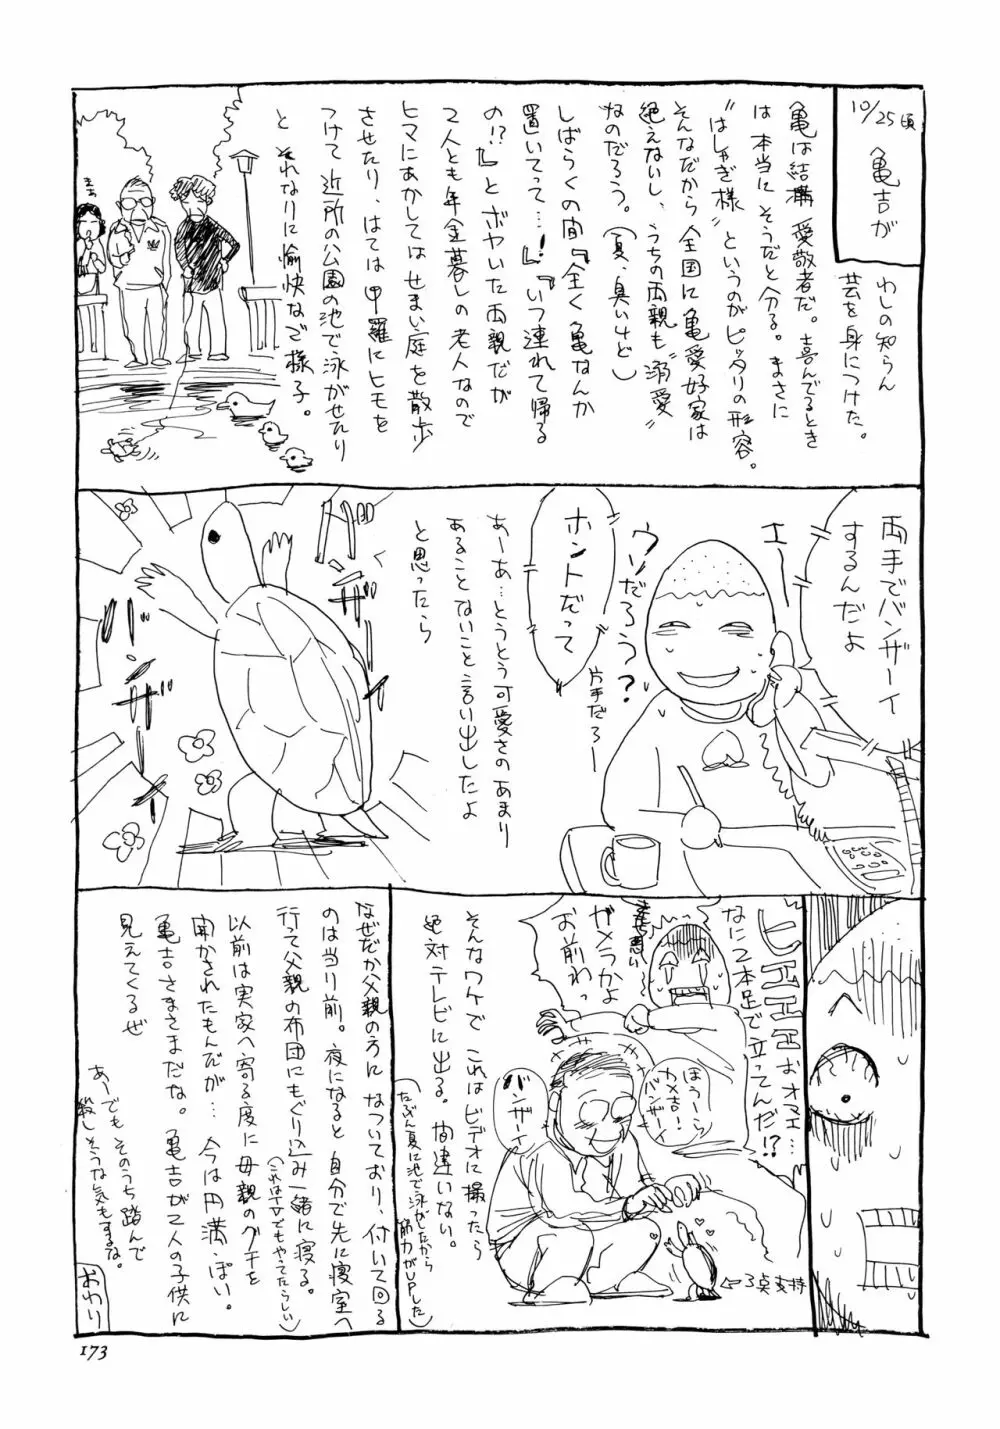 10/25頃
亀吉が
わしの知らん
芸を身につけた。
亀は結構愛敬者だ。喜んでるとき
は本当にそうだと分る。まさに
〝はしゃぎ様〟というのがピッタリの形容。
そんなだから全国に亀愛好家は
絶えないし、うちの両親も〝溺愛〟
なのだろう。(夏、臭いけど)
しばらくの間『全く亀なんか
置いてって…!』『いつ連れて帰る
の!?』とボヤいた両親だが
2人とも年金暮しの老人なので
ヒマにあかしてはせまい庭を散歩
させたり、はては甲羅にヒモを
つけて近所の公園の池で泳がせたり
と それなりに愉快なご様子。
両手でバンザーイ
するんだよ
エー
ウソだろう?
片手だろー
ホントだって
あーあ…とうとう可愛さのあまり
あることないこと言い出したよ
と思ったら
バンザーイ
ヒエエエエ
おオマエ…
なに2本足で立ってんだ!?
ガメラかよ
お前わっ
ほうーら
カメ吉!
バンザーイ
バンザーイ
⇦3点支持
そんなワケで これはビデオに撮ったら
絶対テレビに出る。間違いない。
(たぶん夏に池で泳がしたから
筋力がUPした)
なぜだか父親のうに なついており、付いて回る
のは当り前。夜になると自分で先に寝室へ
行って父親の布団にもぐり込み一緒に寝る。
(これは立でもやってたらしい)
以前は実家へ寄る度に母親のグチを
聞かされたもんだが… 今は円満っぽい。
亀吉さまさまだな。亀吉が2人の子供に
見えてくるぜ
あーでも そのうち踏んで
殺しそうな気もするな。
おわり
173